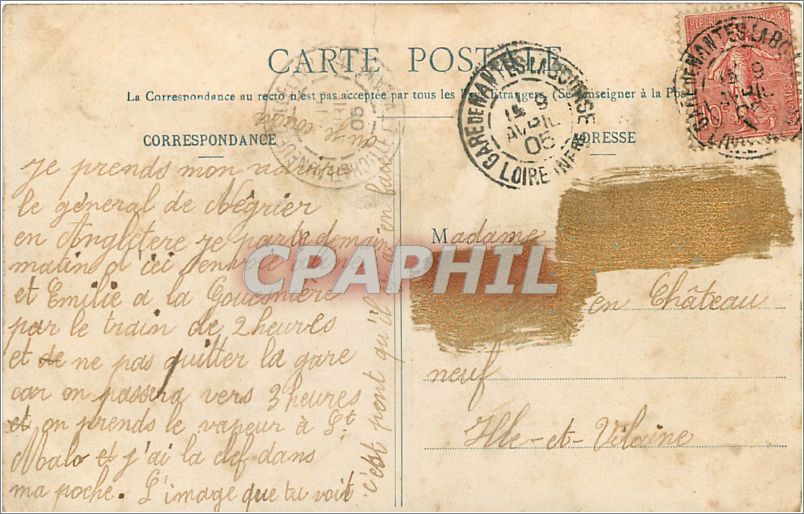 CARTE POSTALE
La Correspondance au recto n'est pas acceptée par tous les Pays Etrangers. (Se renseigner à la Poste
CORRESPONDANCE
ADRESSE
je prends mon navire
le général de Négrier
en Angletere je parts demain
matin d'ici
et Emilie a la Gouesniere
par le train de 2 heures
et de ne pas quitter la gare
car on passera vers 3 heures
et on prends le vapeur à St
Malo et j'ai la clef dans
ma poche. L'image que tu voit
c'est pont qu'il en
Madame
en Château
neuf
Ille-et-Vilaine
GARE DE NANTES LA BOURSE
9
AVRIL
05
LOIRE INFRE
RÉPUBLIQUE FRANÇAISE
10
CPAPHIL